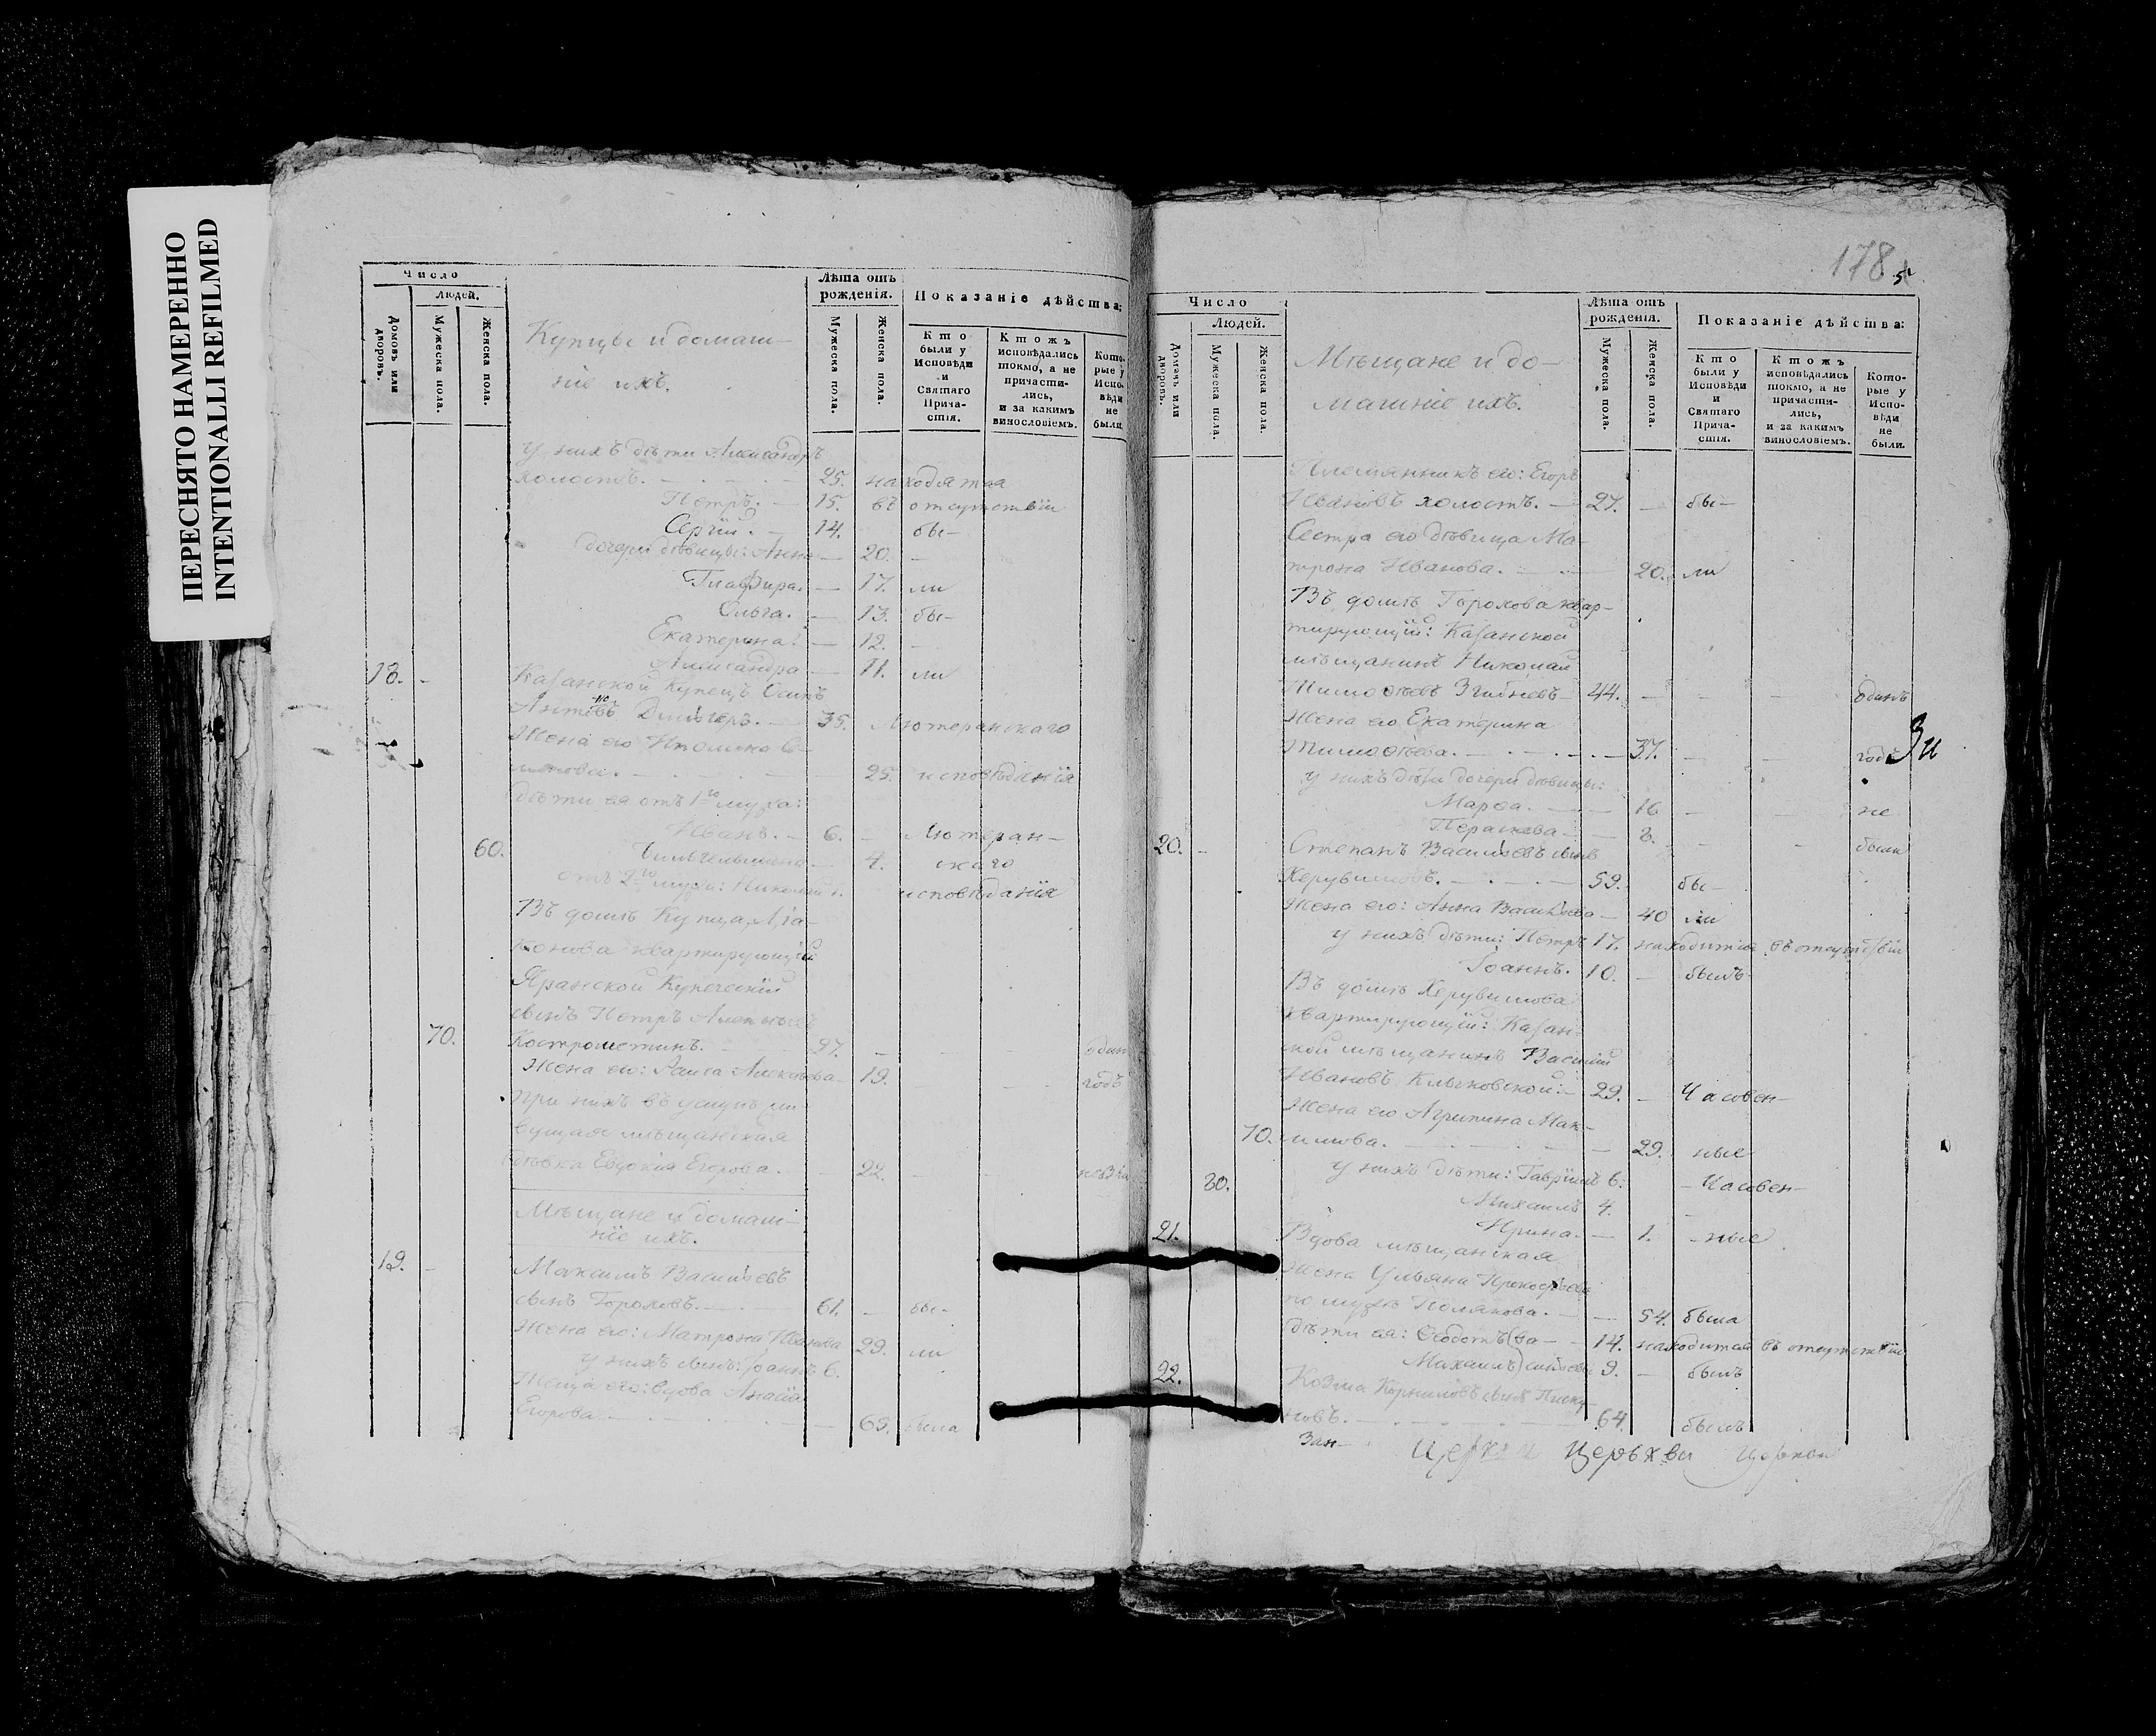 ПЕРЕСНЯТО НАМЕРЕННО
INTENTIONALLI REFILMED
Число
Людей.
Домовъ или дворовъ.
Мужеска пола.
Женска пола.
Купцы и домаш-
ніе ихъ.
Лѣта отъ рожденія.
Мужеска пола.
Женска пола.
Показаніе дѣйства:
Кто были у Исповѣди и Святаго Прича-стія.
Ктожъ исповѣдались токмо, а не причасти-лись, и за какимъ винословіемъ.
Кото-рые у Испо-вѣди не были.
у нихъ дѣти Александръ
холостъ. 25. находятся
Петръ. 15. въ отсутствіи
Сергій. 14. бы-
дочери дѣвицы: Анна 20.
Глафира. 17. ли
Ольга. 13. бы-
Екатерина. 12.
Александра 11. ли
18. Казанской Купецъ Осипъ
35. Лютеранскаго
Жена его
25. исповѣданія
дѣти ея отъ 1го мужа:
Иванъ. 6. Лютеран-
60. 4. скаго
отъ 2го мужа: Николай 1. исповѣданія
Въ домѣ Купца
квартирующій
Яранской Купеческій
сынъ Петръ Алексѣевъ
70. Костроминъ. 27. одинъ
Жена его: Раиса Алексѣева 19. годъ
При нихъ въ услуж
мѣщанская
дѣвка Евдокія Егорова. 22.
Мѣщане и домаш-
ніе ихъ.
19. Максимъ Васильевъ
сынъ Гороховъ. 61. бы-
Жена его: Матрона Иванова 29. ли
у нихъ сынъ: Іоаннъ 6.
Теща его: вдова
Егорова 69. была
178
5
Число
Людей.
Домовъ или дворовъ.
Мужеска пола.
Женска пола.
Мѣщане и до-
машніе ихъ.
Лѣта отъ рожденія.
Мужеска пола.
Женска пола.
Показаніе дѣйства:
Кто были у Исповѣди и Святаго Прича-стія.
Ктожъ исповѣдались токмо, а не причасти-лись, и за какимъ винословіемъ.
Кото-рые у Испо-вѣди не были.
Племянникъ его: Егоръ
Ивановъ холостъ. 27. бы-
Сестра его дѣвица Ма-
трона Иванова. 20. ли
Въ домѣ Горохова квар-
тирующій: Казанской
мѣщанинъ Николай
Тимоѳѣевъ 44. одинъ
Жена его Екатерина
Тимоѳѣева. 37. годъ
Зи
у нихъ дѣти дочери дѣвицы:
Марѳа. 16 не
Параскева 8. были
20. Степанъ Васильевъ сынъ
Херувимовъ. 59. бы-
Жена его: Анна Васильева 40 ли
у нихъ дѣти: Петръ 17. находится въ отсутствіи
Іоаннъ. 10. былъ
Въ домѣ Херувимова
квартирующій: Казан-
ской мѣщанинъ Василій
Ивановъ 29. Часовен-
Жена его Агрипина Мак-
70. симова. 29. ные
у нихъ дѣти: Гавріилъ 6. Часовен-
80. Михаилъ 4.
Ирина 1. ные
21. Вдова мѣщанская
жена Ульяна Прокофьева
по мужѣ Полякова. 54. была
дѣти ея: Ѳедотъ 14. находится въ отсутствіи
Михаилъ 9. былъ
22. Козма Корниловъ сынъ
новъ. 64. былъ
Зан-
Церкви Церькви Церкви